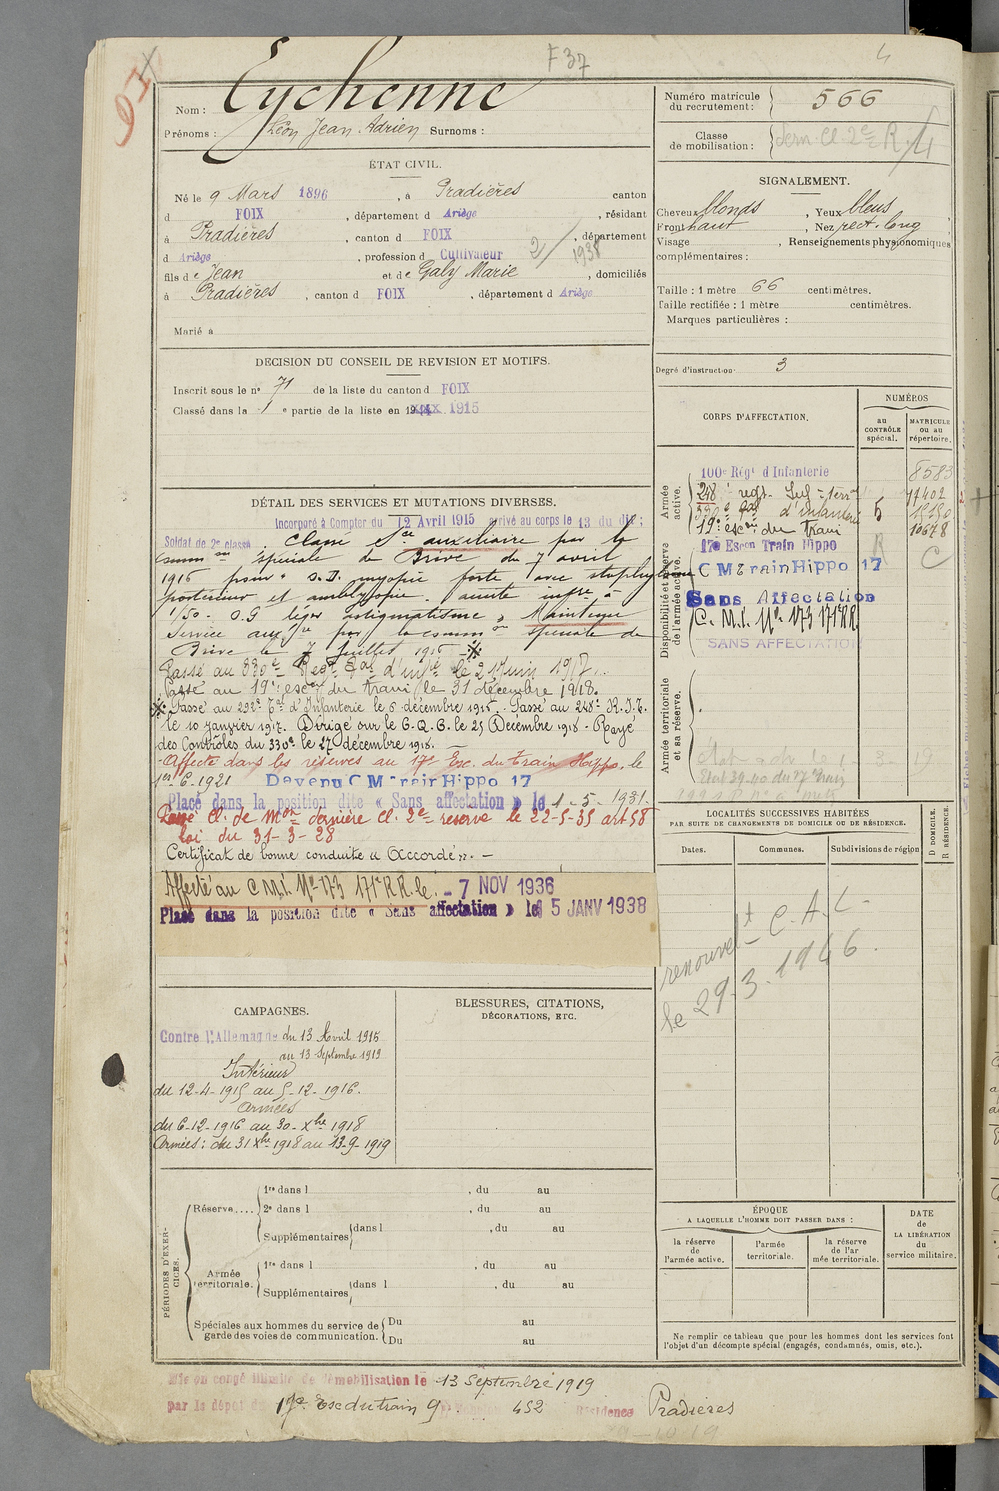 F 37
4
Nom : Eychenne
Prénoms : Léon Jean Adrien Surnoms :
Numéro matricule du recrutement : 566
Classe de mobilisation : dern. Cl. 2e R /4
ÉTAT CIVIL.
Né le 9 Mars 1896, à Pradières canton
d FOIX, département d Ariège, résidant
à Pradières, canton d FOIX, département
d Ariège, profession d Cultivateur 2/1938
fils de Jean et de Galy Marie, domiciliés
à Pradières, canton d FOIX, département d Ariège
Marié à
SIGNALEMENT.
Cheveux blonds, Yeux bleus
Front haut, Nez rect. long
Visage, Renseignements physionomiques
complémentaires :
Taille : 1 mètre 66 centimètres.
Taille rectifiée : 1 mètre centimètres.
Marques particulières :
Degré d'instruction 3
DECISION DU CONSEIL DE REVISION ET MOTIFS.
Inscrit sous le no 71 de la liste du canton d FOIX
Classé dans la 1 e partie de la liste en 19 1915
DÉTAIL DES SERVICES ET MUTATIONS DIVERSES.
Incorporé à Compter du 12 Avril 1915 arrivé au corps le 13 du dit ;
Soldat de 2e classe Classé Sce auxiliaire par la
Comm on spéciale de Brive du 7 avril
1916 pour « O.D. myopie forte avec staphylome
postérieur et amblyopie. acuité infre à
1/50. O.G léger astigmatisme » Maintenu
Service auxre par la comm on spéciale de
Brive le 7 Juillet 1916 ※
Passé au 330e Regt Tal d'Infie le 21 juin 1917.
Passé au 19e escon du train le 31 décembre 1918.
※ Passé au 292e Tal d'Infanterie le 6 décembre 1916. Passé au 248e R.I.T.
le 10 janvier 1917. Dirigé sur le G.Q.G. le 25 Décembre 1918 - Rayé
des Contrôles du 330e le 27 décembre 1918.
Affecté dans les réserves au 17e Esc. du Train Hippo, le
1er-6-1921 Devenu C M Train Hippo 17
Placé dans la position dite « Sans affectation » le 1-5-1931
Passé Cl. de Mon dernière Cl. 2e réserve le 22-5-35 art 58
loi du 31-3-28
Certificat de bonne conduite « Accordé ». -
Affecté au C.M.I. No 173 171e R.R. le - 7 NOV 1936
Placé dans la position dite « Sans affectation » le 15 JANV 1938
CORPS D'AFFECTATION.
NUMÉROS
au CONTRÔLE spécial.
MATRICULE ou au répertoire.
Armée active.
100e Régt d'Infanterie 8583
248e regt. Inf-terr 17402
330e Tal d'infanterie 5
19e escon du train 10678
Disponibilité et réserve de l'armée active.
17e Escon Train Hippo R
C M Train Hippo 17 C
Sans Affectation
C. M. I. No 173 171e RR
SANS AFFECTATION
Armée territoriale et sa réserve.
LOCALITÉS SUCCESSIVES HABITÉES
PAR SUITE DE CHANGEMENTS DE DOMICILE OU DE RÉSIDENCE.
Dates. Communes. Subdivisions de région
D DOMICILE. R RÉSIDENCE.
renouvelt C.A.C.
le 29.3.1946.
CAMPAGNES.
Contre l'Allemagne du 13 Avril 1915
au 13 Septembre 1919
Intérieur
du 12-4-1915 au 5-12-1916.
Armées
du 6-12-1916 au 30-Xbre 1918
Armées : du 31 Xbre 1918 au 13-9-1919
BLESSURES, CITATIONS,
DÉCORATIONS, ETC.
PÉRIODES D'EXERCICES.
Réserve.... 1re dans l, du au
2e dans l, du au
Supplémentaires dans l, du au
Armée territoriale. 1re dans l, du au
Supplémentaires dans l, du au
Spéciales aux hommes du service de garde des voies de communication. Du au
Du au
ÉPOQUE
A LAQUELLE L'HOMME DOIT PASSER DANS :
la réserve de l'armée active.
l'armée territoriale.
la réserve de l'armée territoriale.
DATE de LA LIBÉRATION du service militaire.
Ne remplir ce tableau que pour les hommes dont les services font
l'objet d'un décompte spécial (engagés, condamnés, omis, etc.).
Mis en congé illimité de démobilisation le 13 Septembre 1919
par le dépôt du 17e Esc du train 9e échelon 452 Résidence Pradières